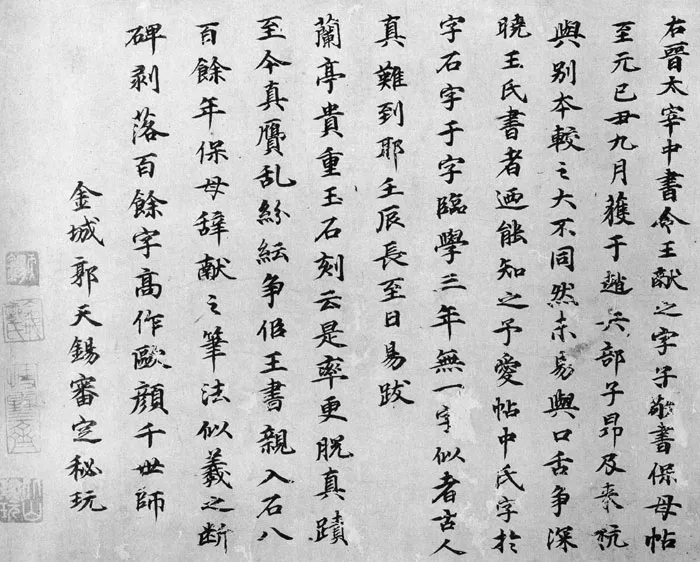 右晉太宰中書令王献之字子敬書保母帖
至元己丑九月獲于趙兵部子昂及來杭
與别本較之大不同然未易與口舌争深
曉王氏書者迺能知之予愛帖中氏字於
字石字于字臨學三年無一字似者古人
真難到耶壬辰長至日易跋
蘭亭貴重玉石刻云是率更脱真蹟
至今真贗乱紛紜争佀王書親入石八
百餘年保母辞献之筆法似羲之断
碑剥落百餘字高作歐顔千世師
金城郭天錫審定秘玩